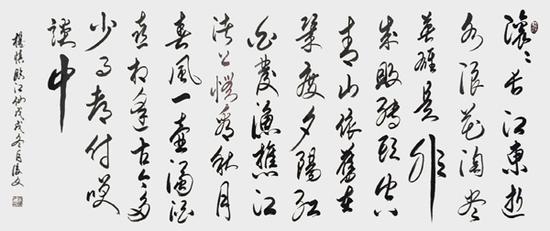 滚〻长江東逝
水浪花淘尽
英雄是非
成敗转头空
青山依舊在
幾度夕陽红
白髮漁樵江
渚上惯看秋月
春风一壶濁酒
喜相逢古今多
少事都付笑
谈中
楊慎臨江仙戊戌冬月